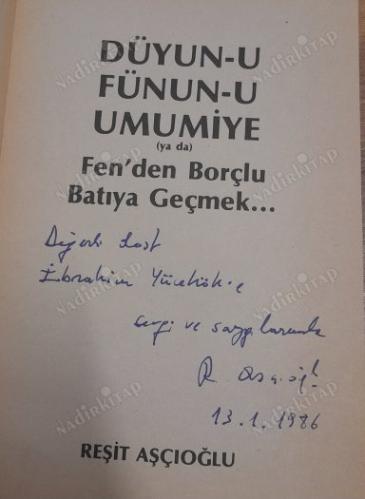 DÜYUN-U
FÜNUN-U
UMUMİYE
(ya da)
Fen'den Borçlu
Batıya Geçmek...
Değerli dost
İbrahim Yücekök'e
sevgi ve saygılarımla
R. Aşçıoğlu
13.1.1986
REŞİT AŞÇIOĞLU
NADİRKİTAP